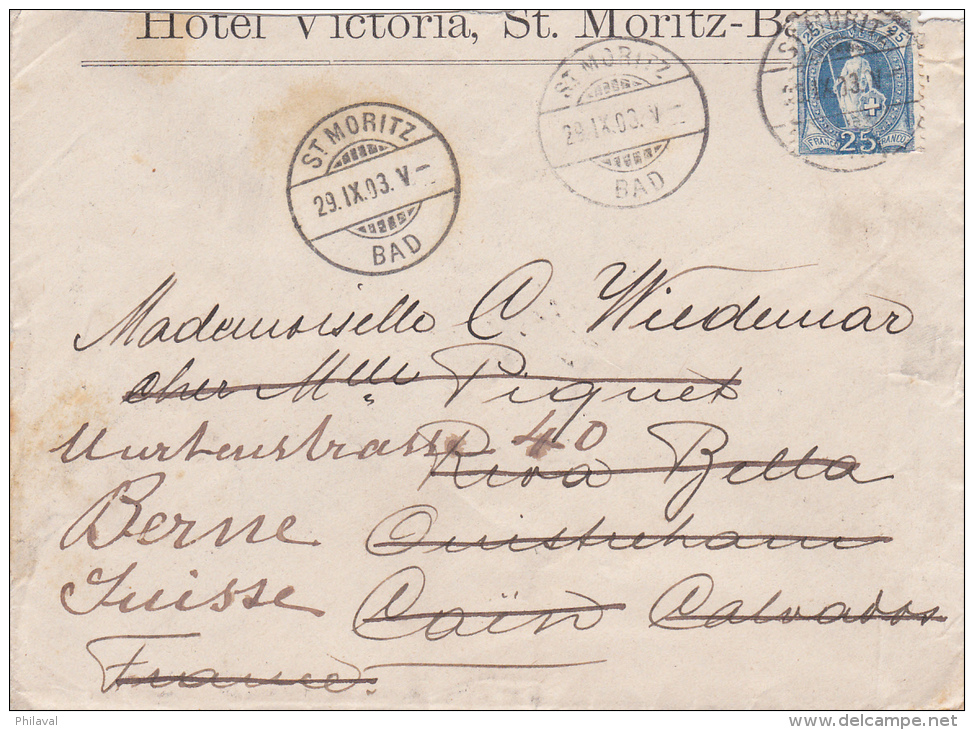 Hotel Victoria, St. Moritz-B
ST. MORITZ
29.IX.03.V-
BAD
ST. MORITZ
29.IX.03.V-
BAD
25 25
FRANCO 25 FRANCO
Mademoiselle C. Wiedemar
cher Mlle Piquet
Murtenstrasse 40
Riva Bella
Berne
Ouistreham
Suisse
Caën Calvados
France.
Philaval
delcampe.net